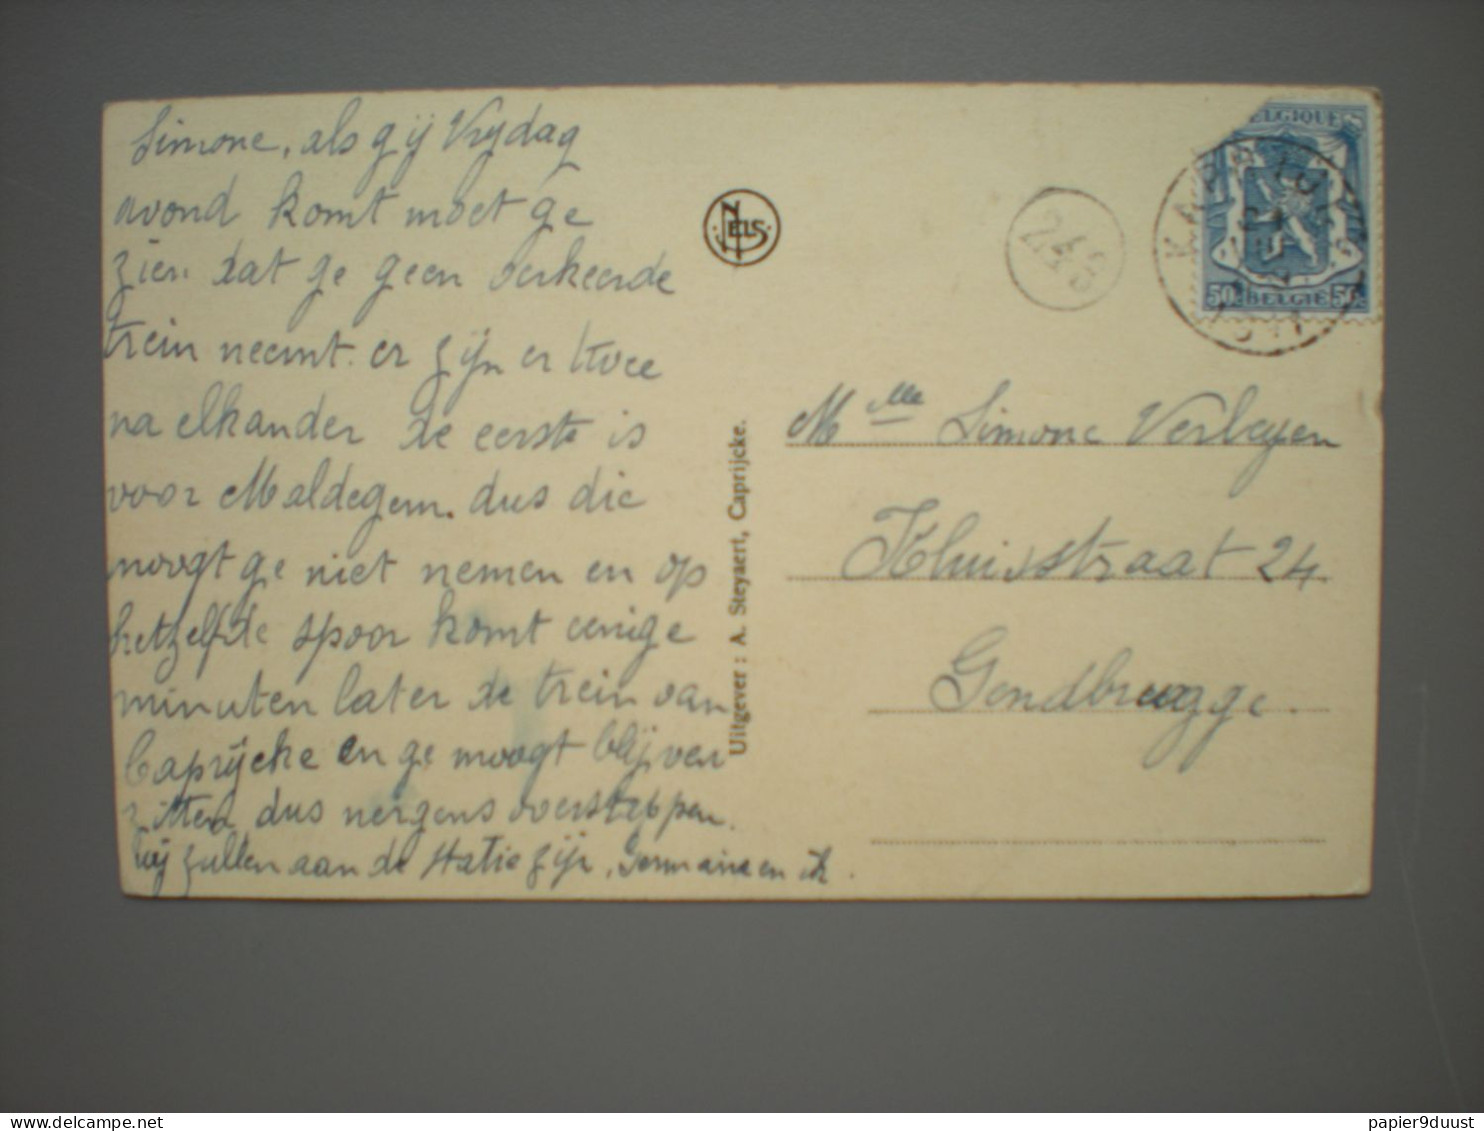 Simone, als gij Vrydag
avond komt moet ge
zien dat ge geen verkeerde
trein neemt. er zijn er twee
na elkander de eerste is
voor Maldegem. dus die
moogt ge niet nemen en op
hetzelfde spoor komt eenige
minuten later de trein van
Caprijcke en ge moogt blijven
zitten dus nergens overstappen.
wij zullen aan de Statie zijn. Germaine en ik.
NELS
Uitgever : A. Steyaert, Caprijcke.
BELGIQUE
50c BELGIE 50c
Melle Simone Verbeyen
Kluisstraat 24
Gendbrugge.
papier9duust